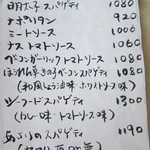 明太子スパゲティ 1080
ナポリタン 920
ミートソース 1000
ナストマトソース 1060
ベーコンガーリックトマトソース 1080
ほうれん草きのこベーコンスパゲティ 1080
(和風しょうゆ味 ホワイトソース味)
シーフードスパゲティ 1300
(カレー味・トマトソース味)
スパゲティ 1190